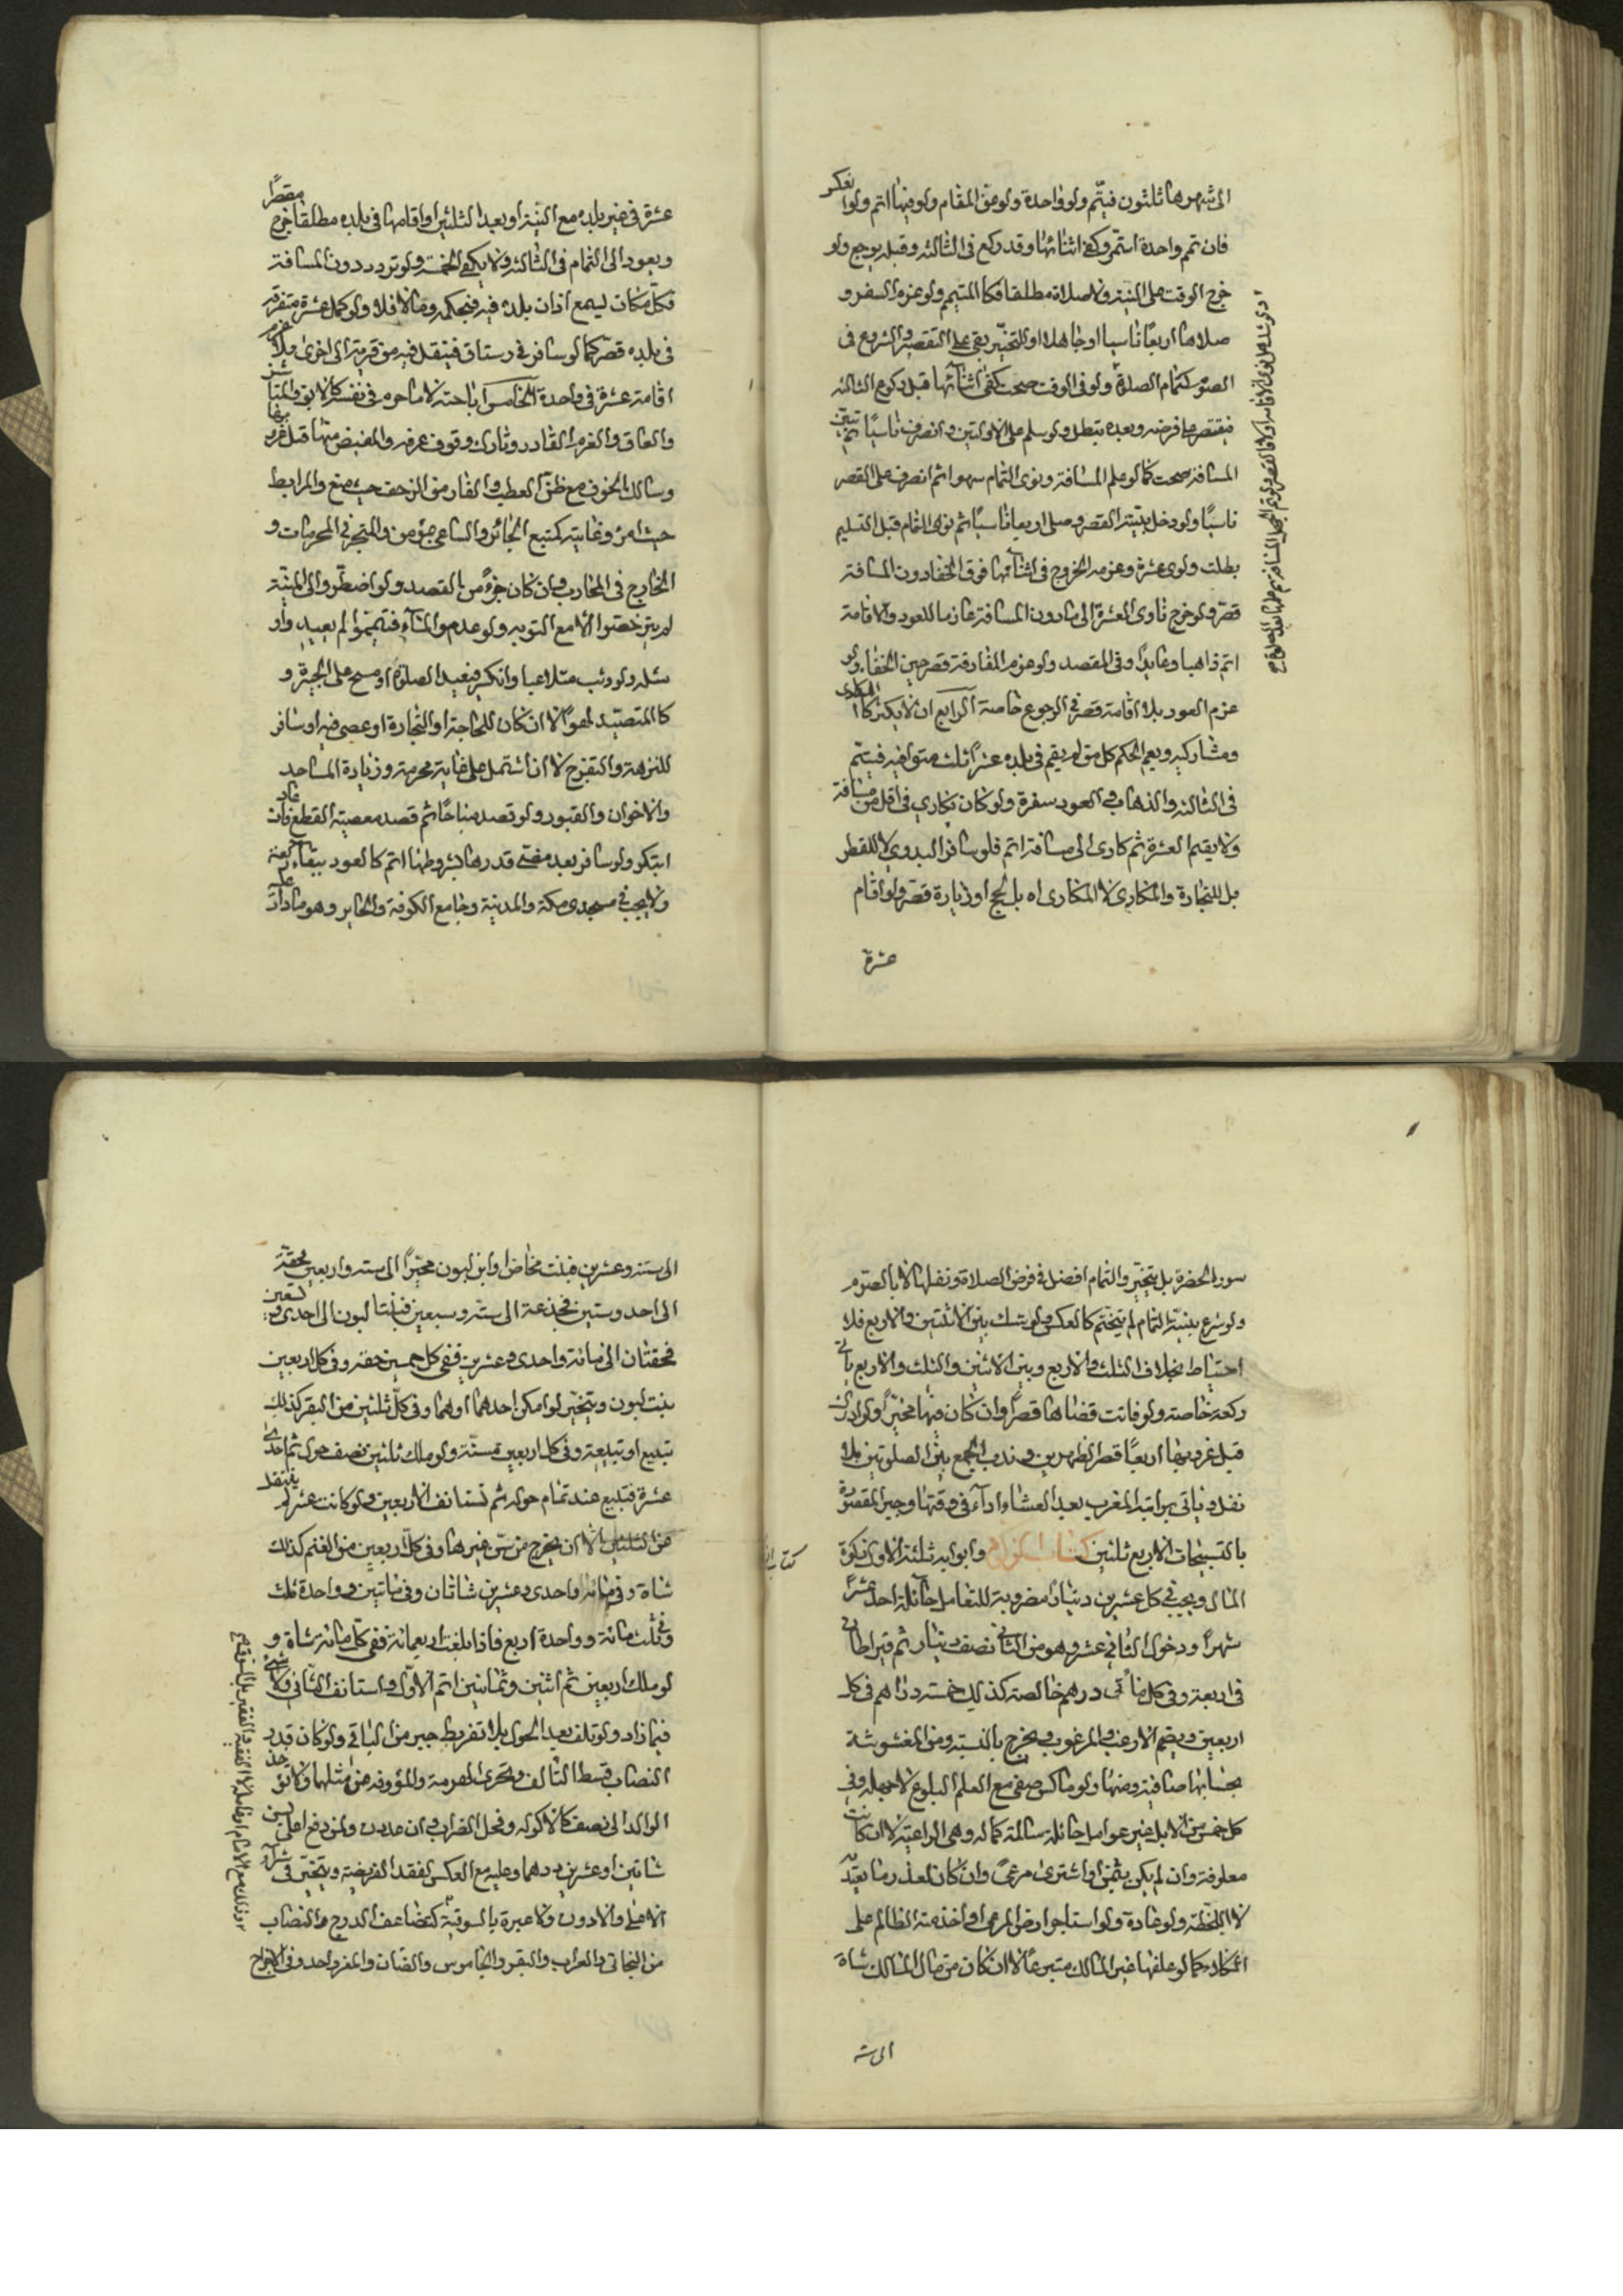 الى شهر هاثلثون فيتم ولو واحدة ولو من المقام ولو فيها اتم ولو انعكر
فان تم واحدة استمر وكفى اثنائها وقد ركع فى الثالثة وقبله يرجع ولو
خرج الوقت على النية ولا صلاة مطلقا فكالمتيمم ولو عزم السفر و
صلاها اربعا ناسيا او جاهلا او التخير بقى على التقصير والشروع فى
الصوم كتمام الصلوة ولو فى الوقت صحت كفى اثنائها قبل ركوع الثالثة
فيقتصر على فرضه وبعده تبطل ولو سلم على الاولتين وانصرف ناسيا ثم تبين
المسافة صحت كما لو علم المسافة ونوى التمام سهوا ثم انصرف على القصر
ناسيا ولو دخل بنية القصر وصلى اربعا ناسيا ثم نوى المقام قبل التسليم
بطلت ولو نوى عشرة وعزم الخروج فى اثنائها فوق الخفا دون المسافة
قصر ولو خرج ناوى العشرة الى مادون المسافة عازما للعود والاقامة
اتم ذاهبا وعايدا وفى المقصد ولو عزم المفارقة قصر حين الخفاء ولو
عزم العود بلا اقامة قصر فى الرجوع خاصة الرابع ان لا يكثر كالمكارى
ومشاركيه ويعم الحكم كل من لم يقم فى بلده عشرا ثلث متواليه فيتم
فى الثالثة والذهاب والعود سفرة ولو كان يكارى فى اقل من مسافة
ولا يقيم العشرة ثم كارى الى مسافة اتم فلو سافر البدوى لا للقطر
بل للتجارة والمكارى لا المكاراه بل لحج او زيارة قصر ولو اقام
عشرة
عشرة فى غير بلده مع النية او بعد الثلثين او اقامها فى بلده مطلقا خرج مقصرا
ويعود الى التمام فى الثالثة ولا يكفى الخمسة ولو تردد دون المسافة
فكل مكان يسمع اذان بلده فيه فبحكمه ومالا فلا ولو كمل عشرة متفرقة
فى بلده قصر كما لو سافر فى رستاق فينتقل فيه من قرية الى اخرى بلا عزم
اقامة عشرة فى واحدة الخامس اباحته لا ما حرم فى نفسه كالابق والناشز
والعاق والغريم القادر وتارك وقوف عرفه والمفيض منها قبل غروبها
وسالك الخوف مع ظن العطب والفار من الزحف حيث منع والمرابط
حيث امر وغايته كمتبع الجائر والساعى بمؤمن والمتجر فى المحرمات و
الخارج فى المحارب وان كان جزء من القصد ولو اضطروا الى الميتة
لم يترخصوا الا مع التوبه ولو عدموا الماء فتيمموا لم يعيدوا
كالمتصيد لهوا لا ان كان للحاجة او التجارة او عصى فيه او سافر
للنزهة والتفرج لا ان اشتمل على غاية محرمة وزيارة المساجد
والاخوان والقبور ولو قصد مباحا ثم قصد معصيته القطع فان عاد
ابتكر ولو سافر بعد مضى قدرها بشروطها اتم كالعود ببقاء
ولا يجب فى مسجدى مكة والمدينة وجامع الكوفة والحاير وهو مادار عليه
سور الحضرة بل يتخير والتمام افضل فى فرض الصلاة ونفلها لا بالصوم
ولو شرع بنية التمام لم يتحتم كالعكس ولو شك بين الاثنتين والاربع فلا
احتياط بخلاف الثلث والاربع وبين الاثنين والثلث والاربع يأتى
ركعة خاصة ولو فاتت قضاها قصرا وان كان فيها مخيرا ولو ادرك
قبل غروبها اربعا قصر الظهرين وندب الجمع بين الصلوتين بلا
نفل وياتى براتبة المغرب بعد العشاء اداء فى وقتها وجبر المقصورة
بالتسبيحات الاربع ثلثين كتاب الزكوة وابوابه ثلثة الاول زكوة
المال ويجب فى كل عشرين دينارا مضروبة للتعامل حائلة احد عشر
شهرا ودخول الثانى عشر وهو من الثانى نصف دينار ثم قيراطان
فى اربعة وفى كل مائتى درهم خالصة كذلك خمسة دراهم فى كل
اربعين ويضم الارغب والمرغوب ويخرج بالنسبة ومن المغشوشة
بحسابها صافية ومنها ولو ماكس صفى مع العلم البلوغ لا جهله وفى
كل خمس من الابل غير عوامل حائلة سالمة كماله وهى الراعية لا ان كانت
معلوفة وان لم يكن بثمن او اشترى مرعى وان كان لعذر وما يعتد
لا اللحظة ولو عادة ولو استاجر ارض المرعى او اخذ منه الظالم على
الكلاء كما لو علفها غير المالك متبرعا لا ان كان من مال المالك شاة
الى ستة
الى ستة وعشرين فبنت مخاض او ابن لبون مخيرا الى سته واربعين فحقة
الى احد وستين فجذعة الى ستة وسبعين فبنتا لبون الى احدى وتسعين
فحقتان الى مائة واحدى وعشرين ففى كل خمسين حقه وفى كل اربعين
بنت لبون ويتخير لو امكن احدهما اوهما وفى كل ثلثين من البقر كذلك
تبيع او تبيعة وفى كل اربعين مسنة ولو ملك ثلثين نصف حول ثم احدى
عشرة فتبيع عند تمام حوله ثم تستانف الاربعين ولو كانت عشر لم ينتقل
من الثلثين الا ان يخرج من سن غيرها وفى كل اربعين من الغنم كذلك
شاة وفى مائة واحدى وعشرين شاتان وفى ماتين وواحدة ثلث
وفى ثلث مائة وواحدة اربع فاذا بلغت اربعمائة ففى كل مائة شاة و
لو ملك اربعين ثم اثنين وثمانين اتم الاول واستانف الثانى ولا شئ
فيما زاد ولو تلف بعد الحول بلا تفريط جبر من الباقى ولو كان قدر
النصاب قسط التالف وتجزى الهرمة والمؤوفه من مثلها ولا تؤخذ
الوالد الى نصف كالاكوله وفحل الضراب وان عدت ولمن دفع اعلى بسن
شاتين او عشرين درهما وعليه مع العكس لفقد الفريضة ويتخير فى شراء
الاعلى والادون ولا عبرة بالسوقية كتضاعف الدرج والنصاب
من البخاتى والعراب والبقر والجاموس والضان والمعز واحد وفى الاخراج